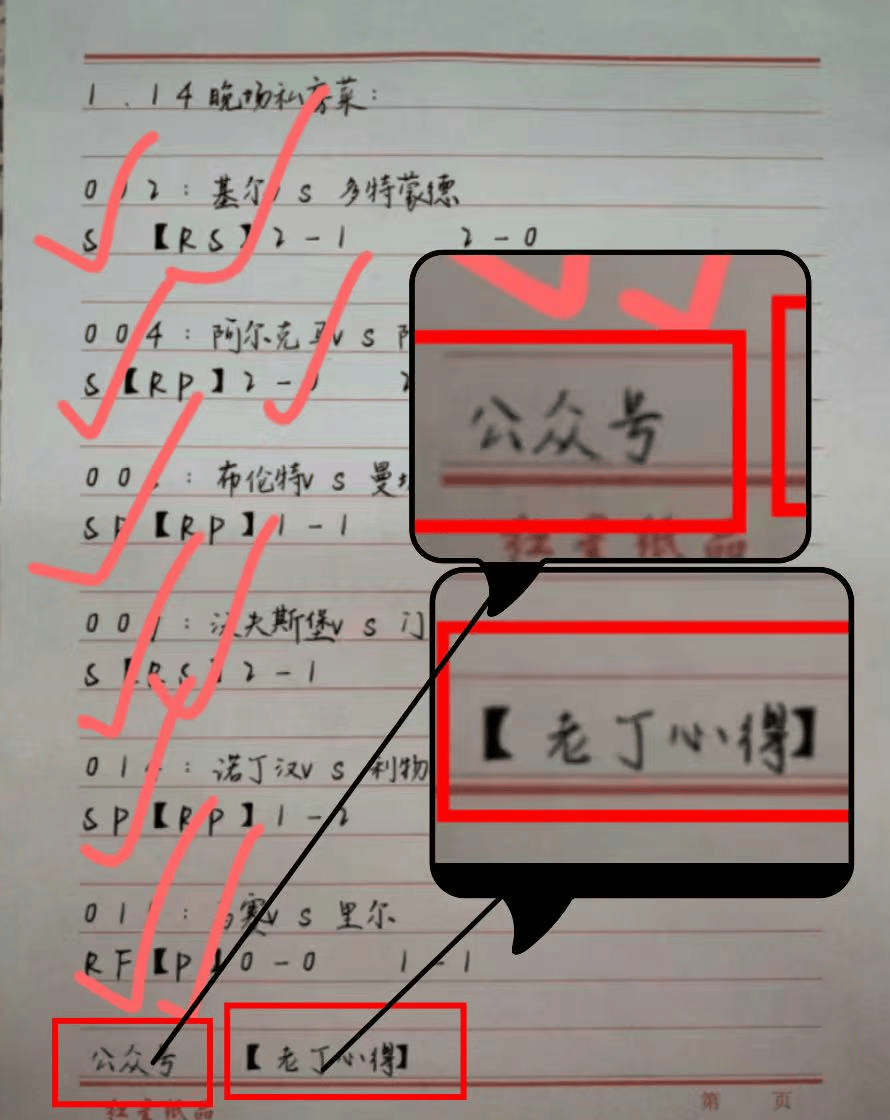 1.14晚场私房菜:
002:基尔vs多特蒙德
S 【RS】2-1 2-0
004:阿尔克马vs阿
S【RP】2-
00 :布伦特vs曼
SP【RP】1-1
00 :沃夫斯堡vs门
S【RS】2-1
01 :诺丁汉vs利物
SP【RP】1-2
01 :马赛vs里尔
RF【P】0-0 1-1
公众号
【老丁心得】
公众号 【老丁心得】
红星纸品 第 页